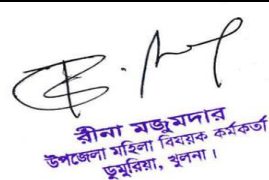 রীনা মজুমদার
উপজেলা মহিলা বিষয়ক কর্মকর্তা
ডুমুরিয়া, খুলনা।